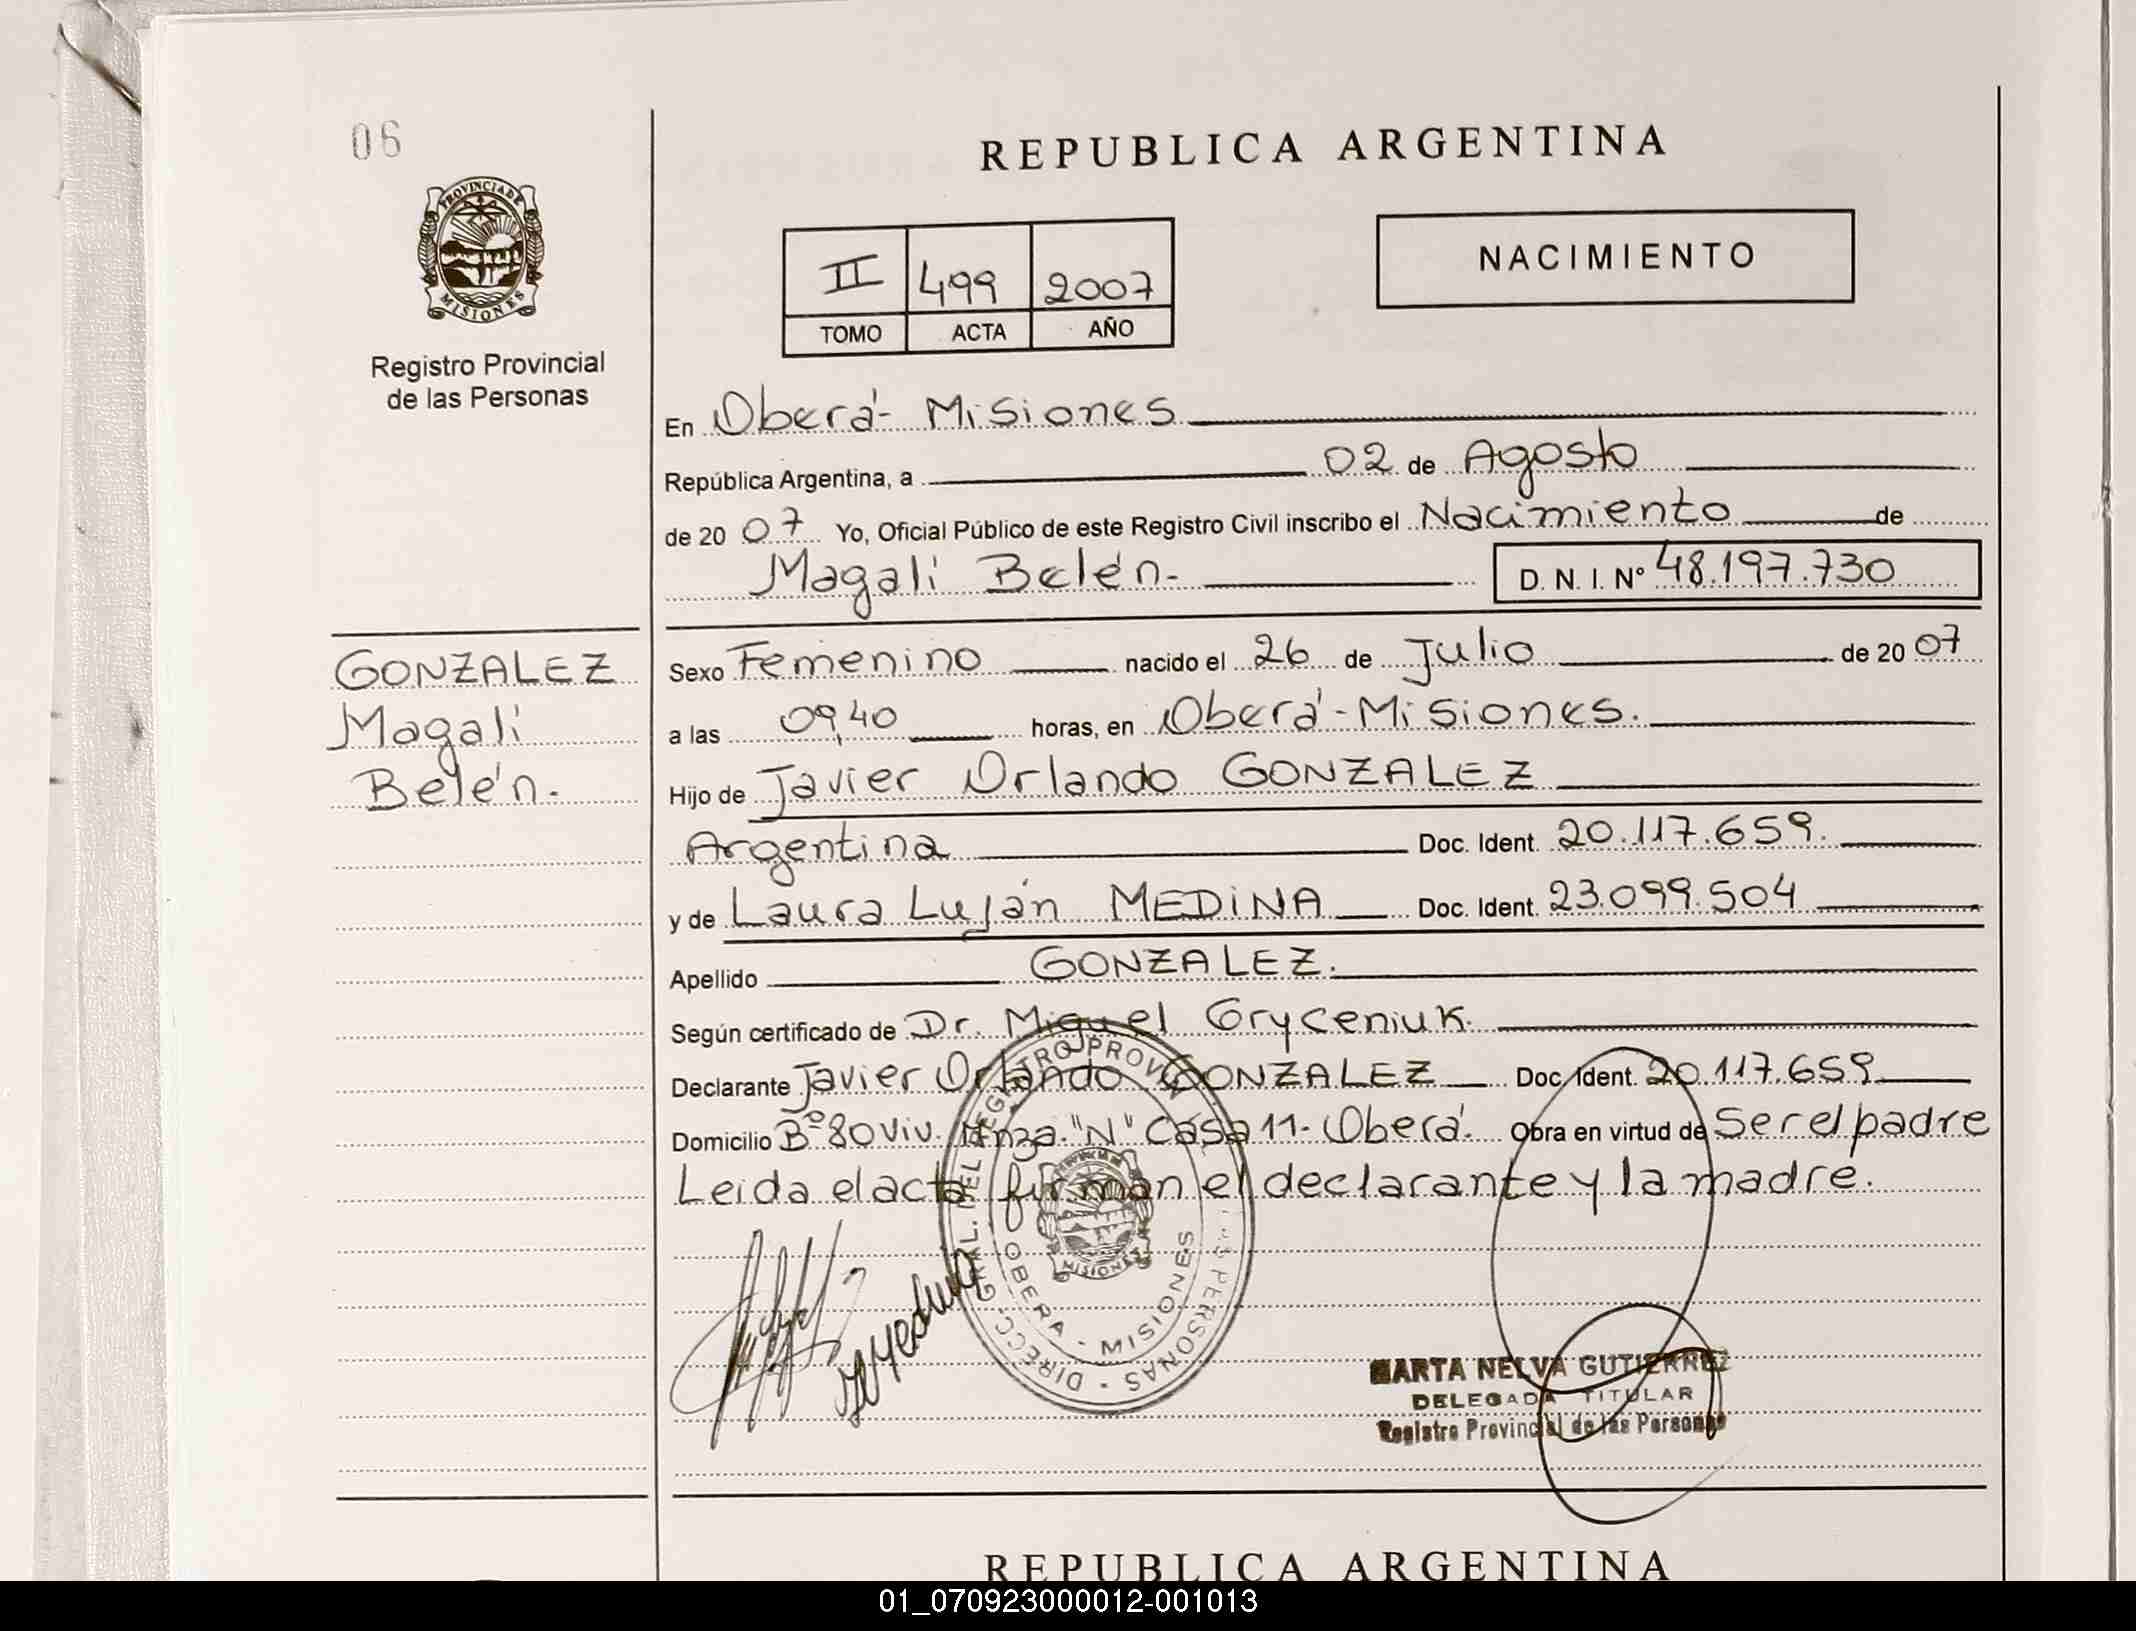 06
PROVINCIA DE
MISIONES
Registro Provincial
de las Personas
GONZALEZ
Magalí
Belén.
REPUBLICA ARGENTINA
II 499 2007
TOMO ACTA AÑO
NACIMIENTO
En Oberá - Misiones
República Argentina, a 02 de Agosto
de 2007 Yo, Oficial Público de este Registro Civil inscribo el Nacimiento de
Magalí Belén.- D. N. I. Nº 48.197.730
Sexo Femenino nacido el 26 de Julio de 2007
a las 09,40 horas, en Oberá - Misiones.
Hijo de Javier Orlando GONZALEZ
Argentina Doc. Ident. 20.117.659.
y de Laura Luján MEDINA Doc. Ident. 23.099.504
Apellido GONZALEZ.
Según certificado de Dr. Miguel Gryceniuk.
Declarante Javier Orlando GONZALEZ Doc. Ident. 20.117.659
Domicilio Bº 80 Viv. Mnza. "N" Casa 11- Oberá. Obra en virtud de Ser el padre
Leida el acta firman el declarante y la madre.
DIRECC. GRAL. DEL REGISTRO PROVIN PERSONAS
OBERA - MISIONES
MISIONES
MARTA NELVA GUTIERREZ
DELEGADA TITULAR
Registro Provincial de las Personas
REPUBLICA ARGENTINA
01_070923000012-001013